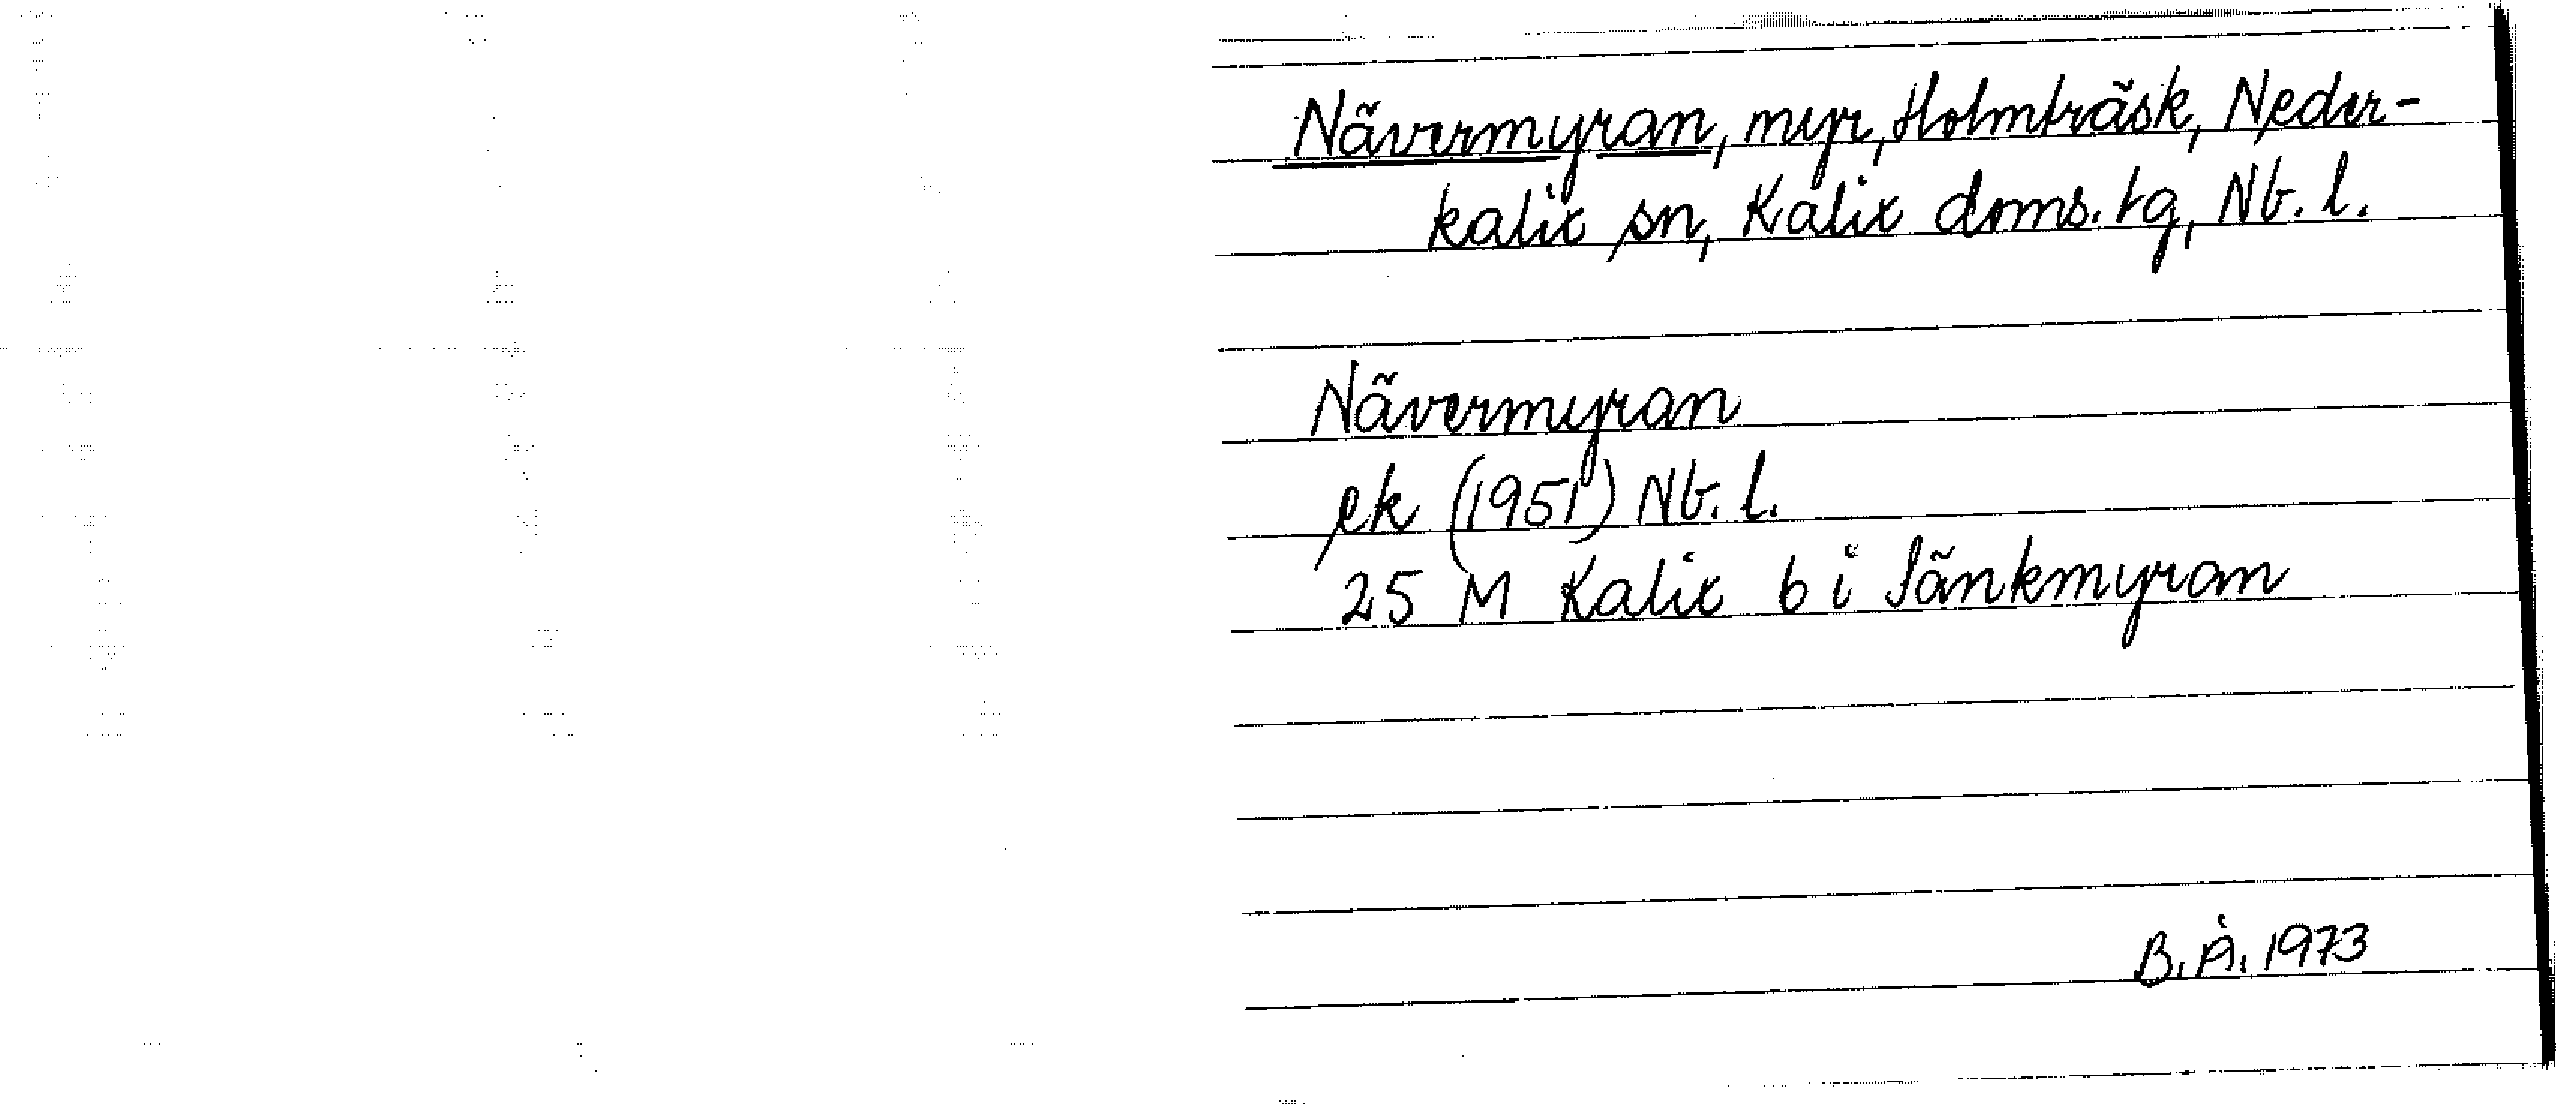 Nävermyran, myr, Holmträsk, Neder-
kalix sn, Kalix doms. tg, Nb. l.
Nävermyran
ek (1951) Nb. l.
25 M Kalix 6 i Sänkmyran
B. Å. 1973